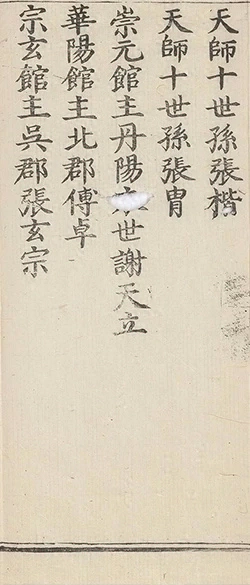 天師十世孫張楷
天師十世孫張胄
崇元館主丹陽世謝天立
華陽館主北郡傅卓
宗玄館主吳郡張玄宗